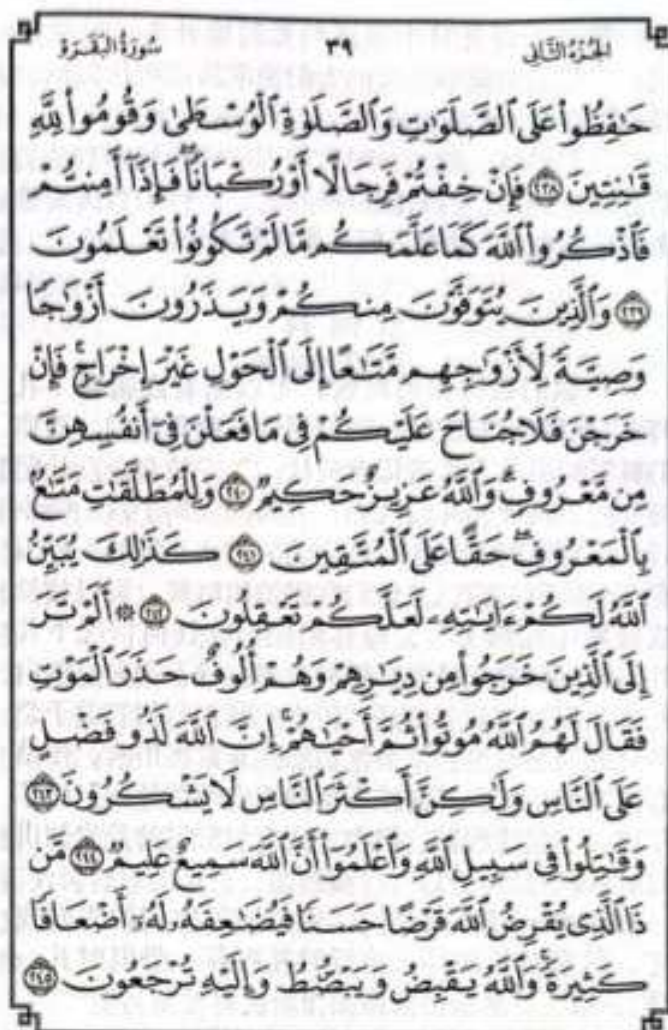 الجزء الثاني ٣٩ سورة البقرة
حَٰفِظُوا۟ عَلَى ٱلصَّلَوَٰتِ وَٱلصَّلَوٰةِ ٱلْوُسْطَىٰ وَقُومُوا۟ لِلَّهِ
قَٰنِتِينَ ٢٣٨ فَإِنْ خِفْتُمْ فَرِجَالًا أَوْ رُكْبَانًا ۖ فَإِذَآ أَمِنتُمْ
فَٱذْكُرُوا۟ ٱللَّهَ كَمَا عَلَّمَكُم مَّا لَمْ تَكُونُوا۟ تَعْلَمُونَ
٢٣٩ وَٱلَّذِينَ يُتَوَفَّوْنَ مِنكُمْ وَيَذَرُونَ أَزْوَٰجًا
وَصِيَّةً لِّأَزْوَٰجِهِم مَّتَٰعًا إِلَى ٱلْحَوْلِ غَيْرَ إِخْرَاجٍ ۚ فَإِنْ
خَرَجْنَ فَلَا جُنَاحَ عَلَيْكُمْ فِى مَا فَعَلْنَ فِىٓ أَنفُسِهِنَّ
مِن مَّعْرُوفٍ ۗ وَٱللَّهُ عَزِيزٌ حَكِيمٌ ٢٤٠ وَلِلْمُطَلَّقَٰتِ مَتَٰعٌۢ
بِٱلْمَعْرُوفِ ۖ حَقًّا عَلَى ٱلْمُتَّقِينَ ٢٤١ كَذَٰلِكَ يُبَيِّنُ
ٱللَّهُ لَكُمْ ءَايَٰتِهِۦ لَعَلَّكُمْ تَعْقِلُونَ ٢٤٢ ۞ أَلَمْ تَرَ
إِلَى ٱلَّذِينَ خَرَجُوا۟ مِن دِيَٰرِهِمْ وَهُمْ أُلُوفٌ حَذَرَ ٱلْمَوْتِ
فَقَالَ لَهُمُ ٱللَّهُ مُوتُوا۟ ثُمَّ أَحْيَٰهُمْ ۚ إِنَّ ٱللَّهَ لَذُو فَضْلٍ
عَلَى ٱلنَّاسِ وَلَٰكِنَّ أَكْثَرَ ٱلنَّاسِ لَا يَشْكُرُونَ ٢٤٣
وَقَٰتِلُوا۟ فِى سَبِيلِ ٱللَّهِ وَٱعْلَمُوٓا۟ أَنَّ ٱللَّهَ سَمِيعٌ عَلِيمٌ ٢٤٤ مَّن
ذَا ٱلَّذِى يُقْرِضُ ٱللَّهَ قَرْضًا حَسَنًا فَيُضَٰعِفَهُۥ لَهُۥٓ أَضْعَافًا
كَثِيرَةً ۚ وَٱللَّهُ يَقْبِضُ وَيَبْصُۜطُ وَإِلَيْهِ تُرْجَعُونَ ٢٤٥